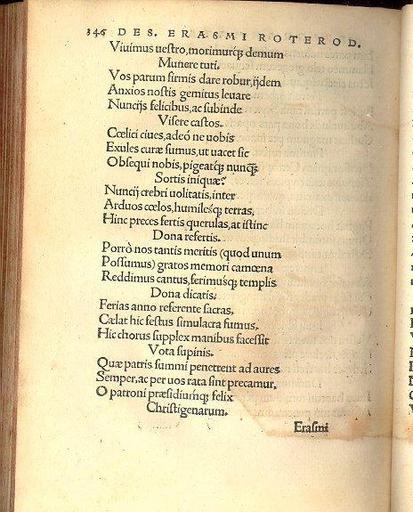 346 DES. ERASMI ROTEROD.
Viuimus uestro, morimurq́; demum
Munere tuti.
Vos parum firmis dare robur, ijdem
Anxios nostis gemitus leuare
Nuncijs felicibus, ac subinde
Visere castos.
Cœlici ciues, adeó ne uobis
Exules curæ sumus, ut uacet sic
Obsequi nobis, pigeatq́; nunq̃;
Sortis iniquæ?
Nuncij crebri uolitatis, inter
Arduos cœlos, humilesq́; terras,
Hinc preces fertis querulas, at istinc
Dona refertis.
Porrò nos tantis meritis (quod unum
Possumus) gratos memori camœna
Reddimus cantus, ferimusq́; templis
Dona dicatis.
Ferias anno referente sacras,
Cælat hic festus simulacra fumus,
Hic chorus supplex manibus facessit
Vota supinis.
Quæ patris summi penetrent ad aures
Semper, ac per uos rata sint precamur,
O patroni præsidiumq́; felix
Christigenarum.
Erasmi